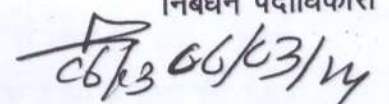 निबंधन पदाधिकारी
06/03 06/03/14